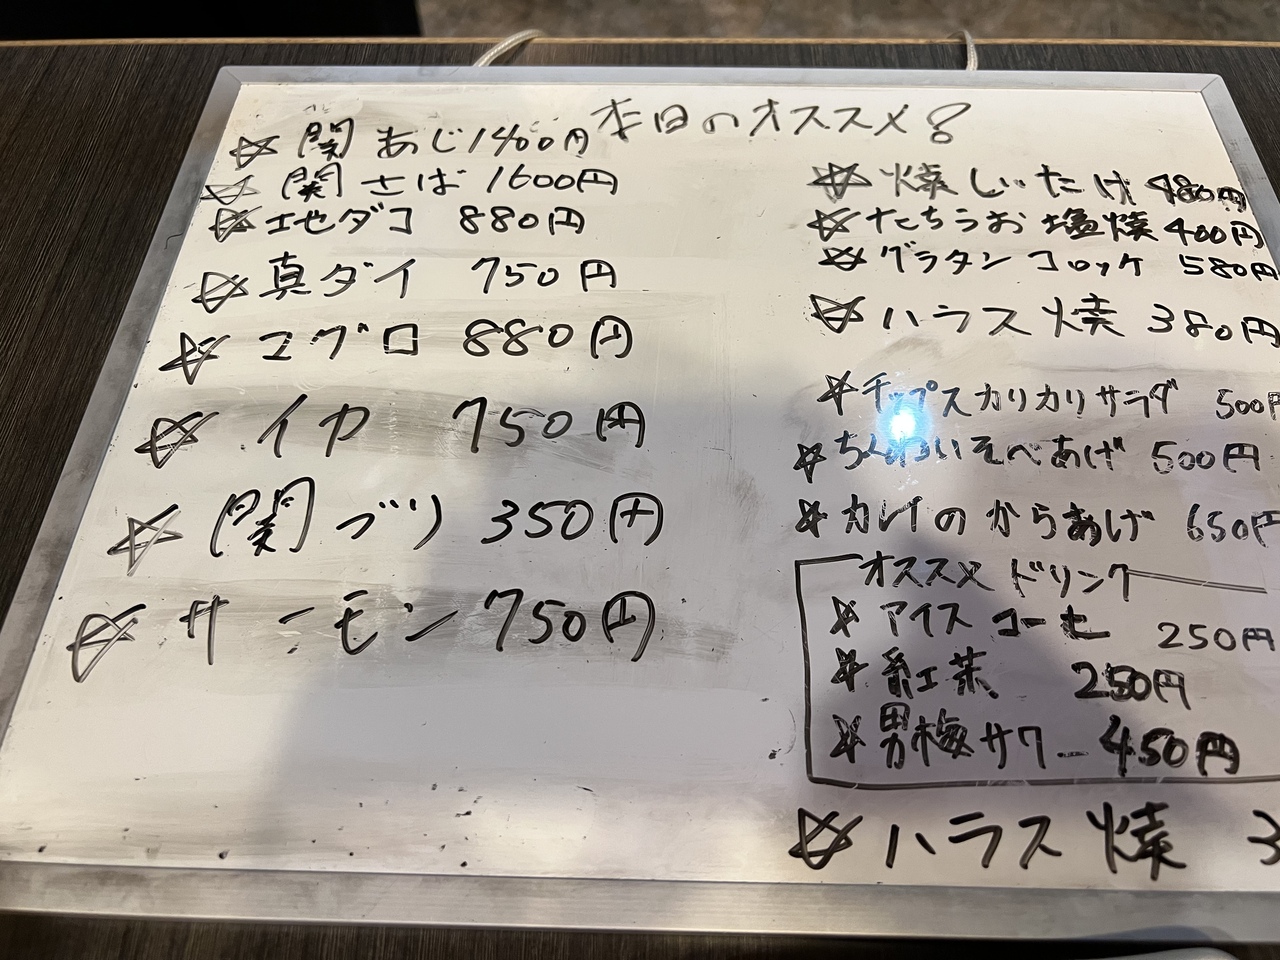 本日のオススメ
☆ 関あじ 1400円
☆ 関さば 1600円
☆ 地ダコ 880円
☆ 真ダイ 750円
☆ マグロ 880円
☆ イカ 750円
☆ 関ブリ 350円
☆ サーモン 750円
☆ 焼しいたけ 480円
☆ たちうお塩焼 400円
☆ グラタンコロッケ 580円
☆ ハラス焼 380円
☆ チップスカリカリサラダ 500円
☆ ちくわいそべあげ 500円
☆ カレイのからあげ 650円
オススメドリンク
☆ アイスコーヒー 250円
☆ 紅茶 250円
☆ 男梅サワー 450円
☆ ハラス焼 3